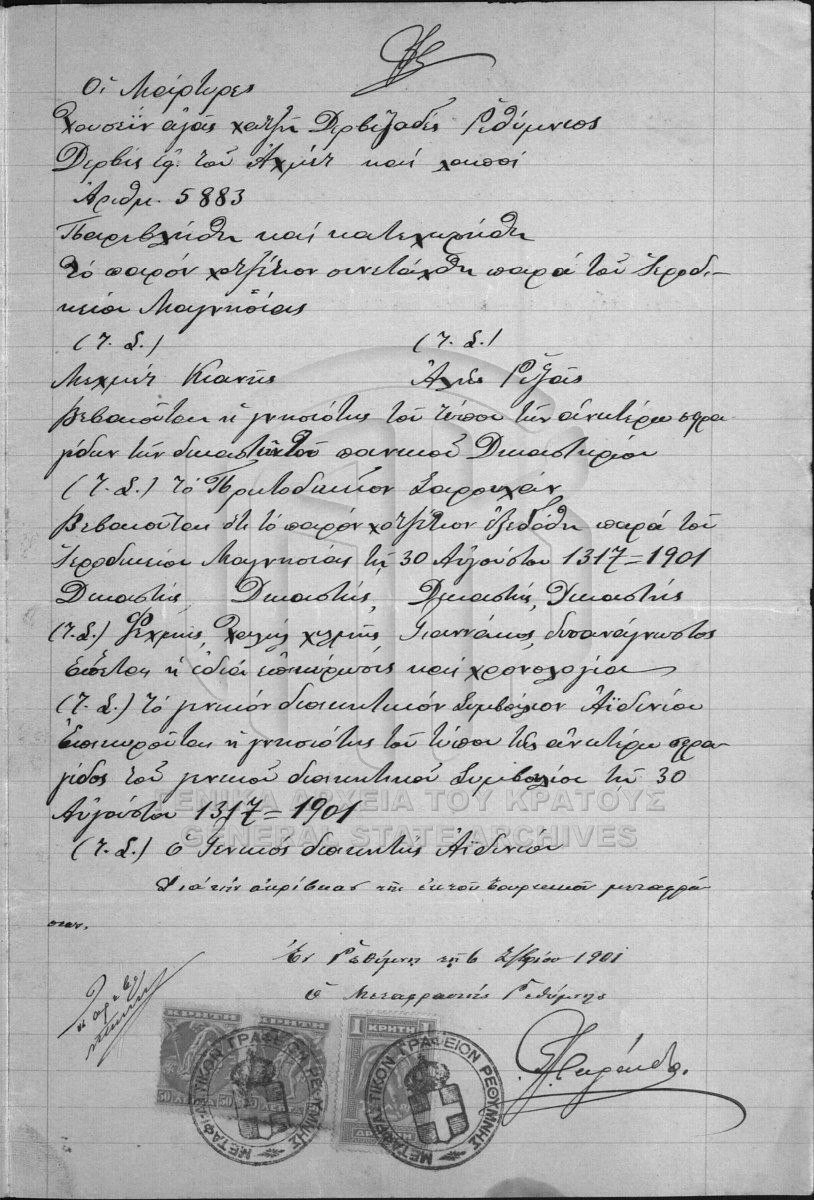 Οἱ Μάρτυρες
Χουσεΐν ἀγᾶς χατζῆ Δερβιζαδές Ρεθύμνιος
Δερβίς τοῦ Ἀχμέτ καί λοιποί
Ἀριθμ. 5883
Παρεβλήθη καί κατεχωρήθη
Τό παρόν χοτζέτιον συνετάχθη παρά τοῦ Ἱεροδι-
κείου Μαγνησίας
(Τ. Σ.) (Τ. Σ.)
Μεχμέτ Κιανής Ἀλῆς Ριζᾶς
Βεβαιοῦται ἡ γνησιότης τοῦ τύπου τῶν ἀνωτέρω σφρα-
γίδων τῶν δικαστῶν τοῦ ποινικοῦ Δικαστηρίου
(Τ. Σ.) τό Πρωτοδικεῖον Σαρουχάν
Βεβαιοῦται ὅτι τό παρόν χοτζέτιον ἐξεδόθη παρά τοῦ
Ἱεροδικείου Μαγνησίας τῇ 30 Αὐγούστου 1317=1901
Δικαστής, Δικαστής, Δικαστής, Δικαστής
(Τ. Σ.) Φεχμῆς, Χαλήλ χιλμῆς, Γιαννάκος, δυσανάγνωστος
Ἕπεται ἡ ἰδία ἐπικύρωσις καί χρονολογία
(Τ. Σ.) τό γενικόν διοικητικόν Συμβούλιον Ἀϊδινίου
Ἐπικυροῦται ἡ γνησιότης τοῦ τύπου τῆς ἀνωτέρω σφρα-
γίδος τοῦ γενικοῦ διοικητικοῦ Συμβουλίου τῇ 30
Αὐγούστου 1317=1901
(Τ. Σ.) ὁ Γενικός διοικητής Ἀϊδινίου
Διά τήν ἀκρίβειαν τῆς ἐκ τοῦ τουρκικοῦ μεταφρά-
σεως.
Ἐν Ρεθύμνῃ τῇ 6 Σ/βρίου 1901
Ὁ Μεταφραστής Ρεθύμνης
ΚΡΗΤΗ ΚΡΗΤΗ 1 ΚΡΗΤΗ 1
50 ΛΕΠΤΑ 50 50 ΛΕΠΤΑ ΔΡΑΧΜΗ
ΜΕΤΑΦΡΑΣΤΙΚΟΝ ΓΡΑΦΕΙΟΝ ΡΕΘΥΜΝΗΣ
ΜΕΤΑΦΡΑΣΤΙΚΟΝ ΓΡΑΦΕΙΟΝ ΡΕΘΥΜΝΗΣ
ΓΕΝΙΚΑ ΑΡΧΕΙΑ ΤΟΥ ΚΡΑΤΟΥΣ
GENERAL STATE ARCHIVES